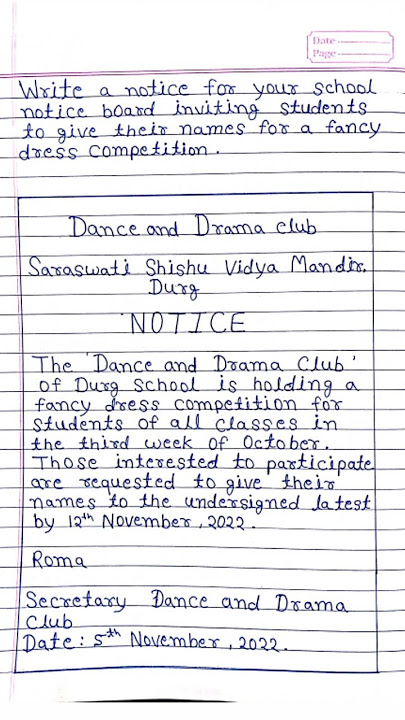 Date
Page
Write a notice for your school
notice board inviting students
to give their names for a fancy
dress competition.
Dance and Drama club
Saraswati Shishu Vidya Mandir,
Durg
NOTICE
The 'Dance and Drama Club'
of Durg School is holding a
fancy dress competition for
students of all classes in
the third week of October.
Those interested to participate
are requested to give their
names to the undersigned latest
by 12th November, 2022.
Roma
Secretary Dance and Drama
Club
Date: 5th November, 2022.